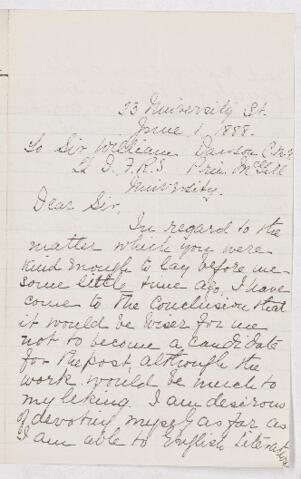 23 University St.
June 1, 1888.
To Sir William Dawson C.M.G.
LL D. F.R.S. Prin McGill
University.
Dear Sir,
In regard to the
matter which you were
kind enough to lay before me
some little time ago, I have
come to the conclusion that
it would be wiser for me
not to become a candidate
for the post, although the
work would be much to
my liking. I am desirous
of devoting myself as far as
I am able to English Literature